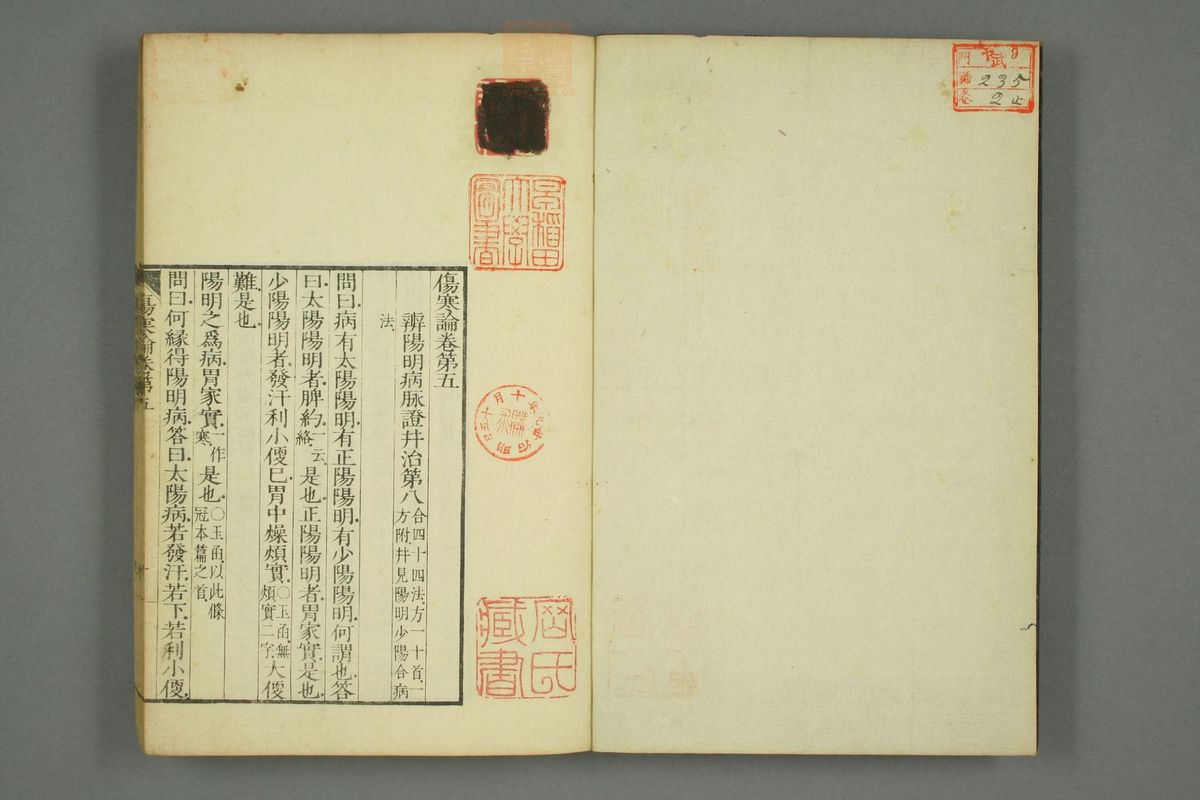 傷寒論卷第五
辨陽明病脉證幷治第八合四十四法、方一十首、一方附、幷見陽明少陽合病
法、
問曰、病有太陽陽明、有正陽陽明、有少陽陽明、何謂也、答
曰、太陽陽明者、脾約、一云絡、是也、正陽陽明者、胃家實是也、
少陽陽明者、發汗利小便已、胃中燥煩實、〇玉函、無煩實二字、大便
難是也、
陽明之爲病、胃家實、一作寒、是也、〇玉函、以此條冠本篇之首、
問曰、何緣得陽明病、答曰、太陽病、若發汗、若下、若利小便、
傷寒論卷第五
早稻田
大學
圖書
明治廿九年十月十五日
岡氏
藏書
門
號 235
卷 2止